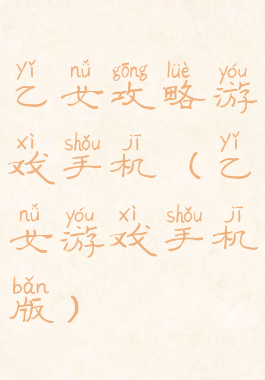 yǐ nǚ gōng lüè yóu
乙女攻略游
xì shǒu jī yǐ
戏手机（乙
nǚ yóu xì shǒu jī
女游戏手机
bǎn
版）